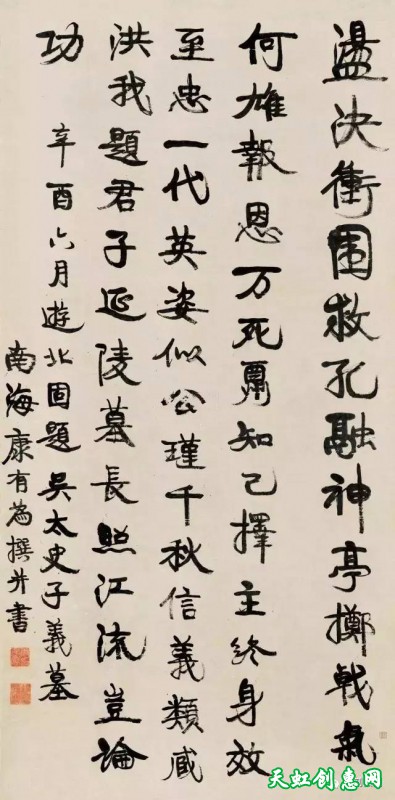 盪決衝圍救孔融神亭擲戟氣
何雄報恩万死羁知己擇主終身效
至忠一代英姿似公瑾千秋信義類臧
洪我題君子延陵墓長照江流豈論
功
辛酉六月遊北固題吳太史子義墓
南海康有為撰并書
天虹创惠网